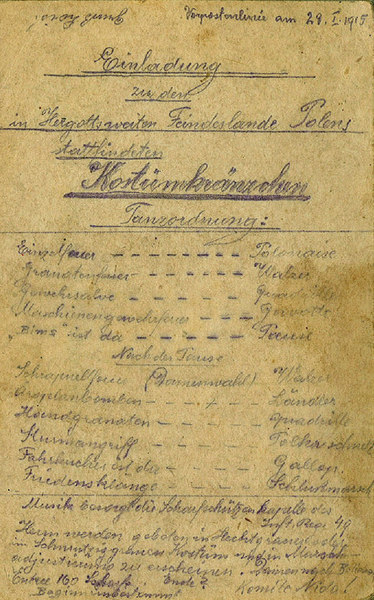 Vorpostenlinie am 29. I. 1915
Einladung
zu den
in Hergottsweiten Feindeslande Polens
stattfindeten
Kostümkränzchen
Tanzordnung:
Einzelfeuer - - - - - - - - - Polonaise
Granatenfeuer - - - - - - - Walzer
Gewehrsalve - - - - - - - Quadrille
Maschienengewehrfeuer - - - - Gavotte
"Bims" ist da - - - - -
Nach der Pause
Schrapnellfeuer (Damenwahl) Walzer
Aroplanbomben - - - - - Ländler
Handgranaten - - - - - Quadrille
Sturmangriff - - - - - Polka schnell
ist da - - - - - Gallop
Friedensklänge - - - - Schlußmarsch
Musik besorgt die Scharfschützenkapelle des
Inft. Reg. 49
Herrn werden gebeten in
in Kostüm und in
adjustierung zu erscheinen.
Entree 160 Ende?
Beginn unbestimmt